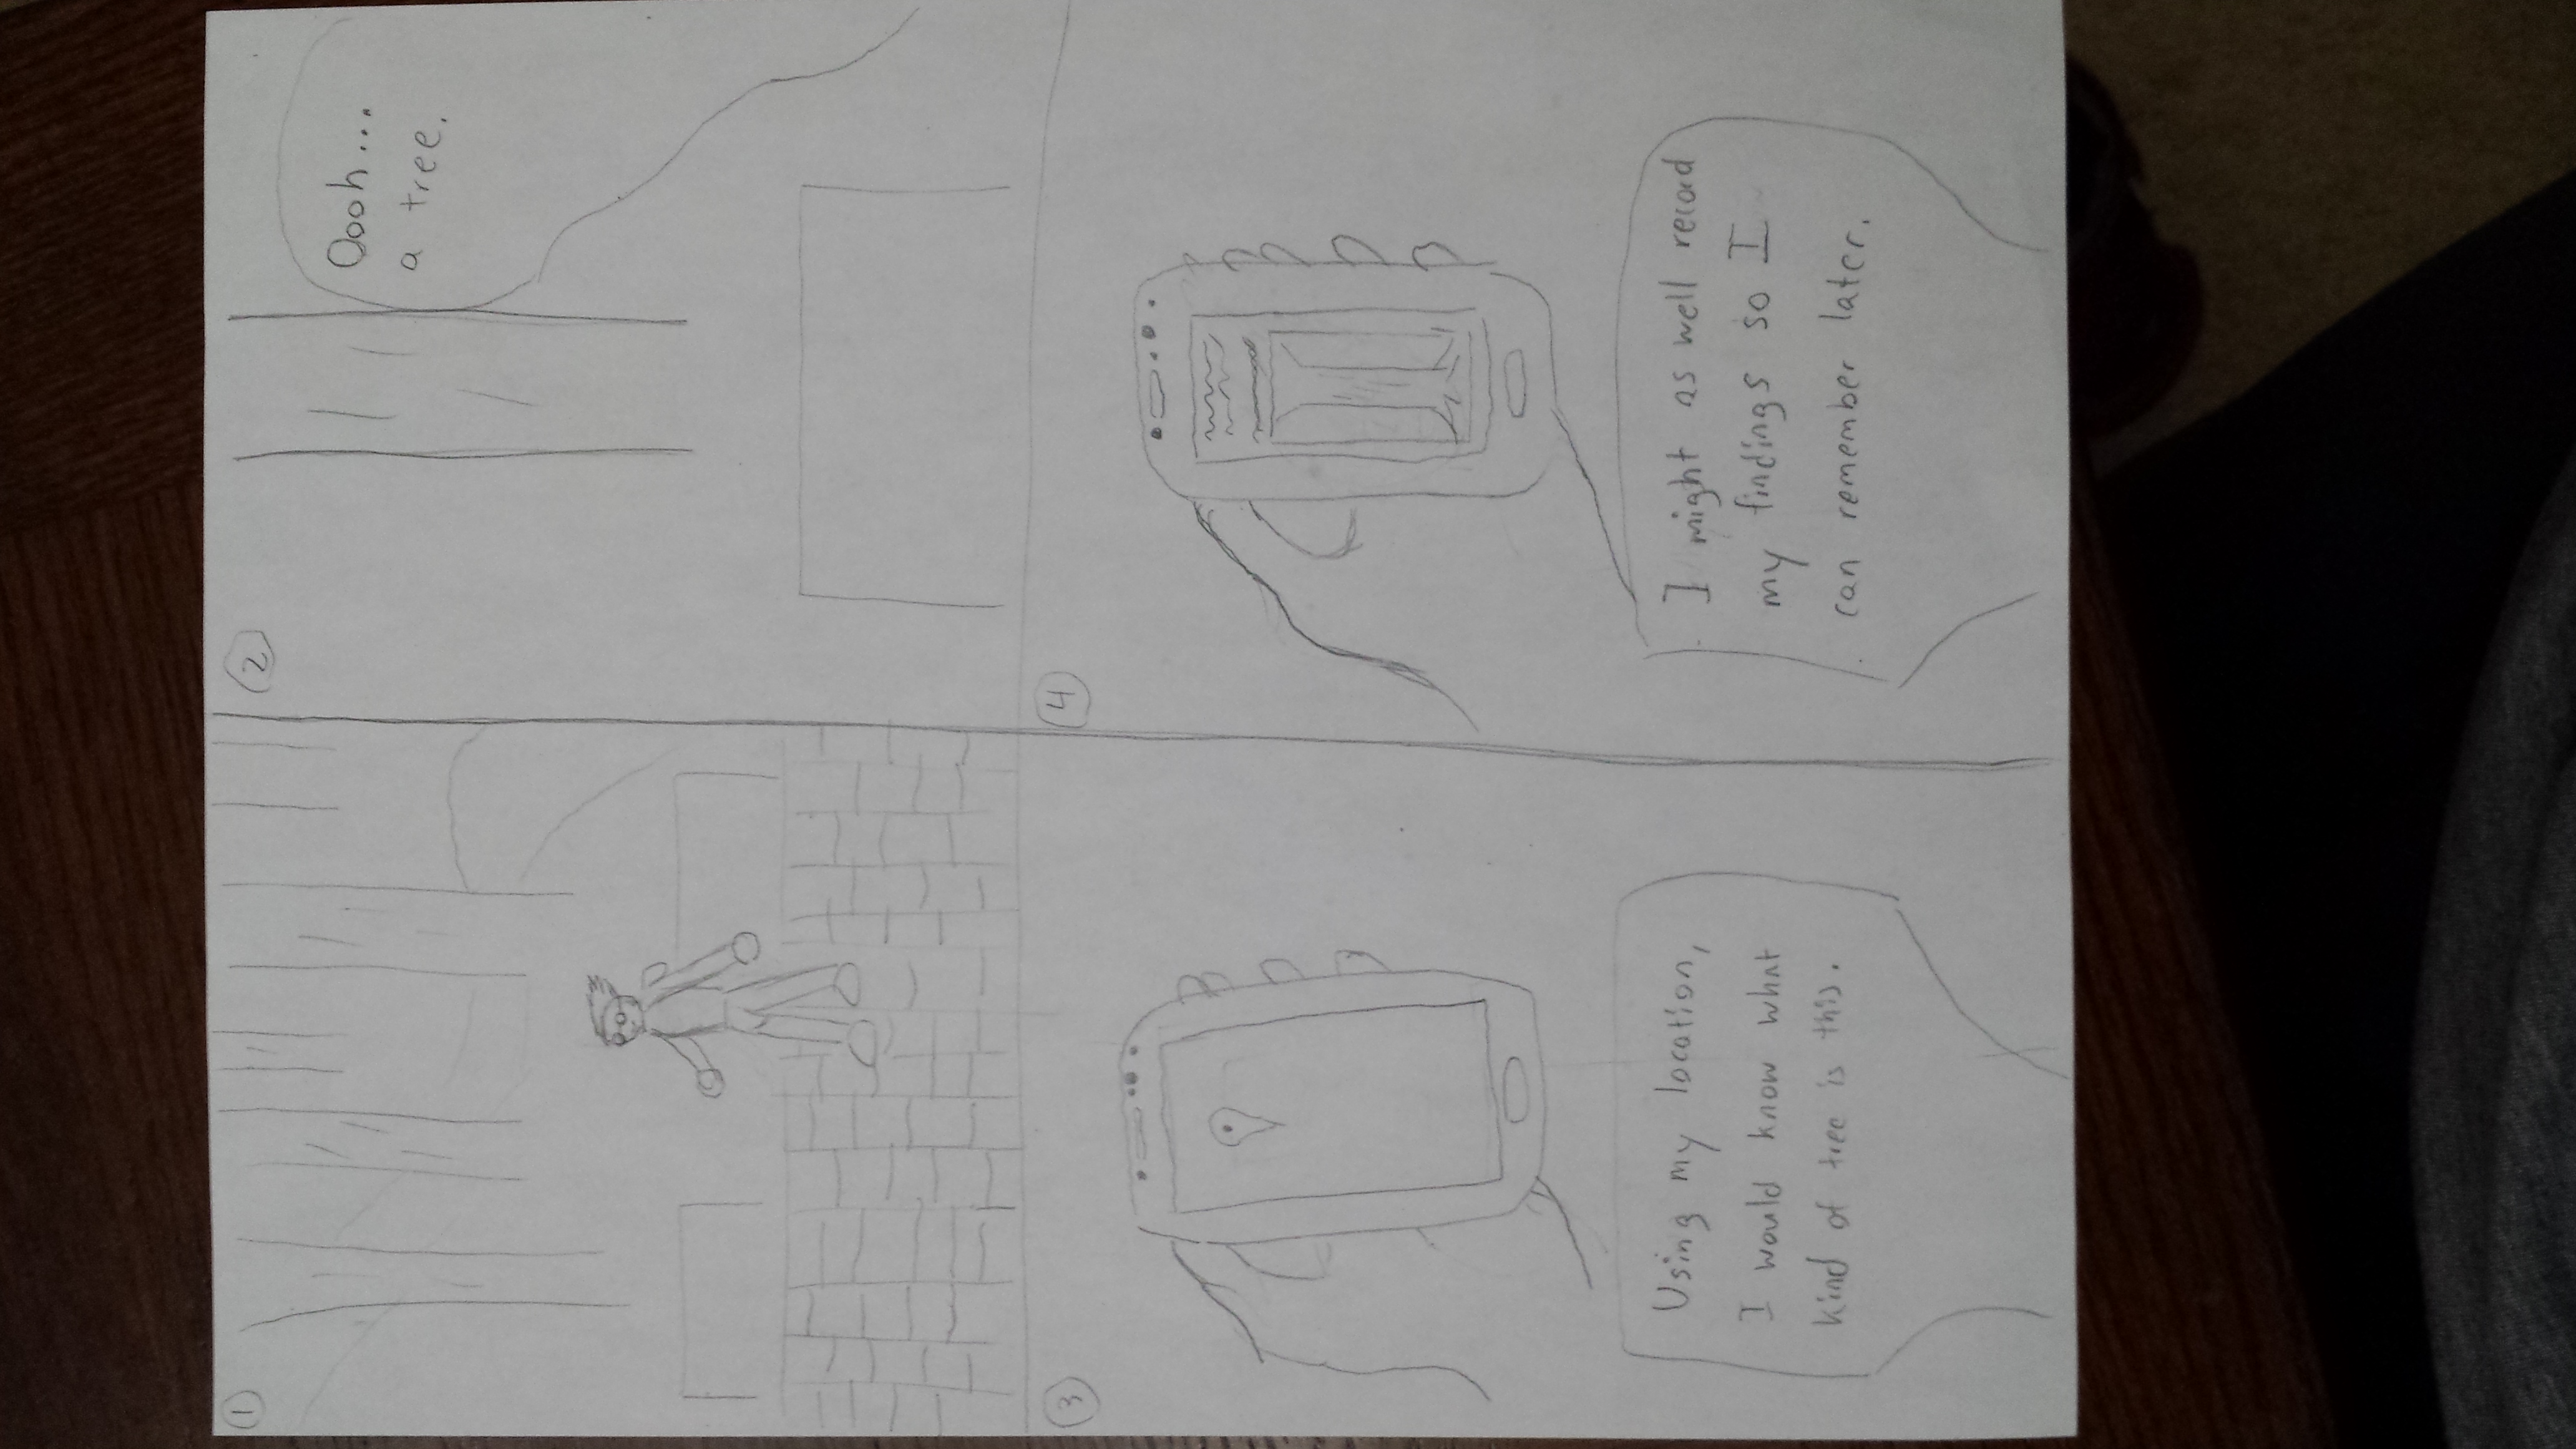 1
2
Oooh...
a tree.
3
Using my location,
I would know what
kind of tree is this.
4
I might as well record
my findings so I
can remember later.